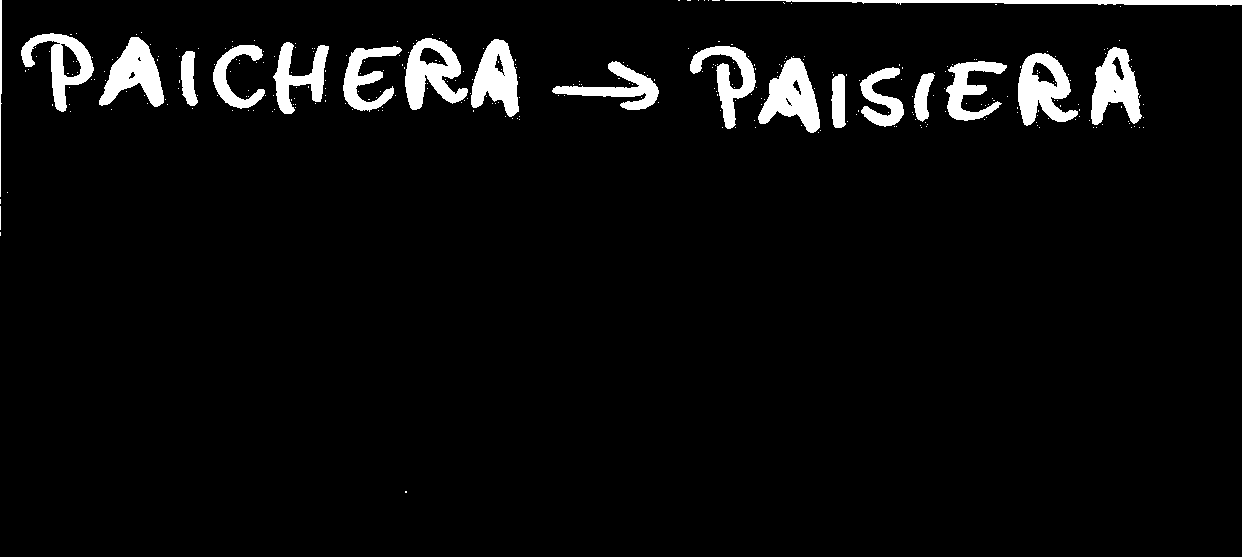 PAICHERA → PAISIERA